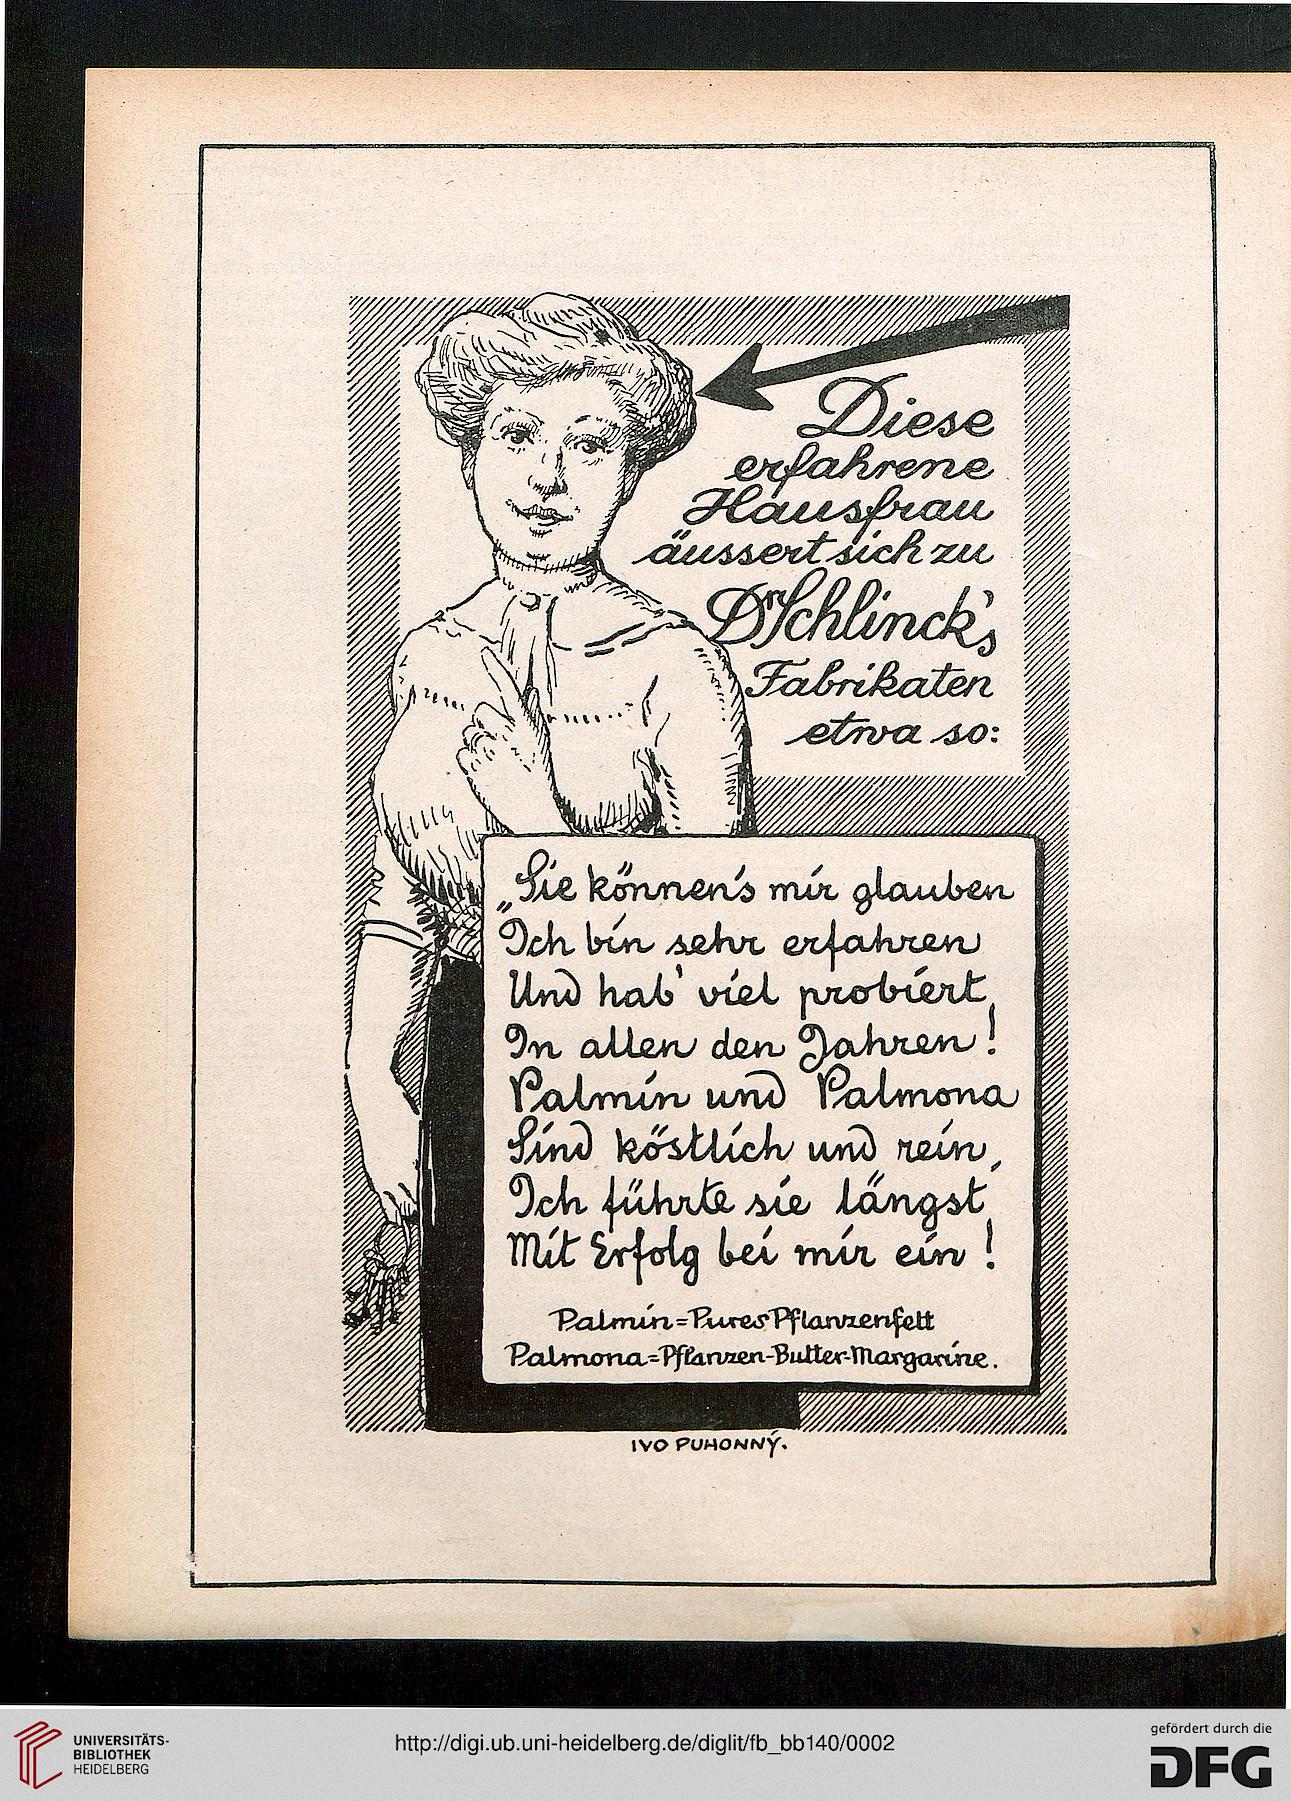 Diese
erfahrene
Hausfrau
äussert sich zu
Dr Schlinck's
Fabrikaten
etwa so:
„Sie können's mir glauben
Ich bin sehr erfahren
Und hab' viel probiert
In allen den Jahren!
Palmin und Palmona
Sind köstlich und rein,
Ich führte sie längst
Mit Erfolg bei mir ein!
Palmin=Pures Pflanzenfett
Palmona=Pflanzen-Butter-Margarine.
IVO PUHONNÝ.
UNIVERSITÄTS-
BIBLIOTHEK
HEIDELBERG
http://digi.ub.uni-heidelberg.de/diglit/fb_bb140/0002
gefördert durch die
DFG